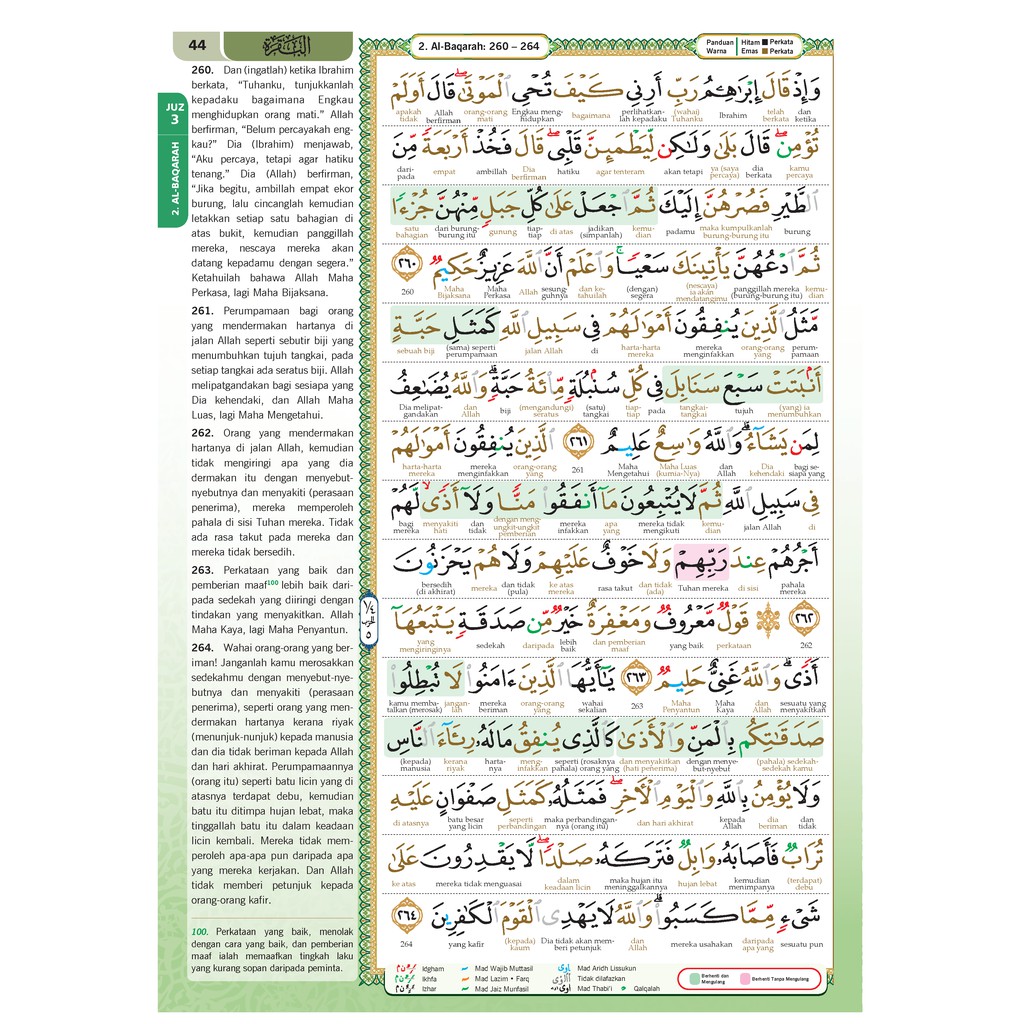 44
البقرة
2. Al-Baqarah: 260 – 264
Panduan Warna
Hitam ■ Perkata
Emas ■ Perkata
JUZ 3
2. AL-BAQARAH
260. Dan (ingatlah) ketika Ibrahim
berkata, “Tuhanku, tunjukkanlah
kepadaku bagaimana Engkau
menghidupkan orang mati.” Allah
berfirman, “Belum percayakah eng-
kau?” Dia (Ibrahim) menjawab,
“Aku percaya, tetapi agar hatiku
tenang.” Dia (Allah) berfirman,
“Jika begitu, ambillah empat ekor
burung, lalu cincanglah kemudian
letakkan setiap satu bahagian di
atas bukit, kemudian panggillah
mereka, nescaya mereka akan
datang kepadamu dengan segera.”
Ketahuilah bahawa Allah Maha
Perkasa, lagi Maha Bijaksana.
261. Perumpamaan bagi orang
yang mendermakan hartanya di
jalan Allah seperti sebutir biji yang
menumbuhkan tujuh tangkai, pada
setiap tangkai ada seratus biji. Allah
melipatgandakan bagi sesiapa yang
Dia kehendaki, dan Allah Maha
Luas, lagi Maha Mengetahui.
262. Orang yang mendermakan
hartanya di jalan Allah, kemudian
tidak mengiringi apa yang dia
dermakan itu dengan menyebut-
nyebutnya dan menyakiti (perasaan
penerima), mereka memperoleh
pahala di sisi Tuhan mereka. Tidak
ada rasa takut pada mereka dan
mereka tidak bersedih.
263. Perkataan yang baik dan
pemberian maaf100 lebih baik dari-
pada sedekah yang diiringi dengan
tindakan yang menyakitkan. Allah
Maha Kaya, lagi Maha Penyantun.
264. Wahai orang-orang yang ber-
iman! Janganlah kamu merosakkan
sedekahmu dengan menyebut-nye-
butnya dan menyakiti (perasaan
penerima), seperti orang yang men-
dermakan hartanya kerana riyak
(menunjuk-nunjuk) kepada manusia
dan dia tidak beriman kepada Allah
dan hari akhirat. Perumpamaannya
(orang itu) seperti batu licin yang di
atasnya terdapat debu, kemudian
batu itu ditimpa hujan lebat, maka
tinggallah batu itu dalam keadaan
licin kembali. Mereka tidak mem-
peroleh apa-apa pun daripada apa
yang mereka kerjakan. Dan Allah
tidak memberi petunjuk kepada
orang-orang kafir.
100. Perkataan yang baik, menolak
dengan cara yang baik, dan pemberian
maaf ialah memaafkan tingkah laku
yang kurang sopan daripada peminta.
وَإِذْ قَالَ إِبْرَٰهِـۧمُ رَبِّ أَرِنِى كَيْفَ تُحْىِ ٱلْمَوْتَىٰ ۖ قَالَ أَوَلَمْ
dan ketika | telah berkata | Ibrahim | (wahai) Tuhanku | perlihatkan-lah kepadaku | bagaimana | Engkau meng-hidupkan | orang-orang mati | Allah berfirman | apakah tidak
تُؤْمِن ۖ قَالَ بَلَىٰ وَلَـٰكِن لِّيَطْمَئِنَّ قَلْبِى ۖ قَالَ فَخُذْ أَرْبَعَةً مِّنَ
kamu percaya | dia berkata | ya (saya percaya) | akan tetapi | agar tenteram | hatiku | Dia berfirman | ambillah | empat | dari-pada
ٱلطَّيْرِ فَصُرْهُنَّ إِلَيْكَ ثُمَّ ٱجْعَلْ عَلَىٰ كُلِّ جَبَلٍ مِّنْهُنَّ جُزْءًا
burung | maka kumpulkanlah burung-burung itu | padamu | kemu-dian | jadikan (simpanlah) | di atas | tiap-tiap | gunung | dari burung-burung itu | satu bahagian
ثُمَّ ٱدْعُهُنَّ يَأْتِينَكَ سَعْيًا ۚ وَٱعْلَمْ أَنَّ ٱللَّهَ عَزِيزٌ حَكِيمٌ ٢٦٠
kemu-dian | panggillah mereka (burung-burung itu) | (nescaya) ia akan mendatangimu | (dengan) segera | dan ke-tahuilah | sesung-guhnya | Allah | Maha Perkasa | Maha Bijaksana | 260
مَّثَلُ ٱلَّذِينَ يُنفِقُونَ أَمْوَٰلَهُمْ فِى سَبِيلِ ٱللَّهِ كَمَثَلِ حَبَّةٍ
perum-pamaan | orang-orang yang | mereka menginfakkan | harta-harta mereka | di | jalan Allah | (sama) seperti perumpamaan | sebuah biji
أَنۢبَتَتْ سَبْعَ سَنَابِلَ فِى كُلِّ سُنۢبُلَةٍ مِّا۟ئَةُ حَبَّةٍ ۗ وَٱللَّهُ يُضَـٰعِفُ
(yang) ia menumbuhkan | tujuh | tangkai-tangkai | pada | tiap-tiap | (satu) tangkai | (mengandungi) seratus | biji | dan Allah | Dia melipat-gandakan
لِمَن يَشَآءُ ۗ وَٱللَّهُ وَٰسِعٌ عَلِيمٌ ٢٦١ ٱلَّذِينَ يُنفِقُونَ أَمْوَٰلَهُمْ
bagi se-siapa yang | Dia kehendaki | dan Allah | Maha Luas (kurnia-Nya) | Maha Mengetahui | 261 | orang-orang yang | mereka menginfakkan | harta-harta mereka
فِى سَبِيلِ ٱللَّهِ ثُمَّ لَا يُتْبِعُونَ مَآ أَنفَقُوا۟ مَنًّا وَلَآ أَذًى ۙ لَّهُمْ
di | jalan Allah | kemu-dian | mereka tidak mengikuti | apa yang | mereka infakkan | dengan meng-ungkit-ungkit pemberian | dan tidak | menyakiti hati | bagi mereka
أَجْرُهُمْ عِندَ رَبِّهِمْ وَلَا خَوْفٌ عَلَيْهِمْ وَلَا هُمْ يَحْزَنُونَ
pahala mereka | di sisi | Tuhan mereka | dan tidak (ada) | rasa takut | ke atas mereka | dan tidak (pula) | mereka | bersedih (di akhirat)
٢٦٢ قَوْلٌ مَّعْرُوفٌ وَمَغْفِرَةٌ خَيْرٌ مِّن صَدَقَةٍ يَتْبَعُهَآ
262 | perkataan | yang baik | dan pemberian maaf | lebih baik | daripada | sedekah | yang mengiringinya
أَذًى ۗ وَٱللَّهُ غَنِىٌّ حَلِيمٌ ٢٦٣ يَـٰٓأَيُّهَا ٱلَّذِينَ ءَامَنُوا۟ لَا تُبْطِلُوا۟
sesuatu yang menyakitkan | dan Allah | Maha Kaya | Maha Penyantun | 263 | wahai sekalian | orang-orang yang | mereka beriman | jangan-lah | kamu memba-talkan (merosak)
صَدَقَـٰتِكُم بِٱلْمَنِّ وَٱلْأَذَىٰ كَٱلَّذِى يُنفِقُ مَالَهُۥ رِئَآءَ ٱلنَّاسِ
(pahala) sedekah-sedekah kamu | dengan menye-but-nyebut | dan menyakitkan (hati penerima) | seperti (rosaknya pahala) orang yang | meng-infakkan | harta-nya | kerana riyak | (kepada) manusia
وَلَا يُؤْمِنُ بِٱللَّهِ وَٱلْيَوْمِ ٱلْـَٔاخِرِ ۖ فَمَثَلُهُۥ كَمَثَلِ صَفْوَانٍ عَلَيْهِ
dan tidak | dia beriman | kepada Allah | dan hari akhirat | maka perbandingan-nya (orang itu) | seperti perbandingan | batu besar yang licin | di atasnya
تُرَابٌ فَأَصَابَهُۥ وَابِلٌ فَتَرَكَهُۥ صَلْدًا ۖ لَّا يَقْدِرُونَ عَلَىٰ
(terdapat) debu | kemudian menimpanya | hujan lebat | maka hujan itu meninggalkannya | dalam keadaan licin | mereka tidak menguasai | ke atas
شَىْءٍ مِّمَّا كَسَبُوا۟ ۗ وَٱللَّهُ لَا يَهْدِى ٱلْقَوْمَ ٱلْكَـٰفِرِينَ ٢٦٤
sesuatu pun | daripada apa yang | mereka usahakan | dan Allah | Dia tidak akan mem-beri petunjuk | (kepada) kaum | yang kafir | 264
Idgham
Ikhfa
Izhar
Mad Wajib Muttasil
Mad Lazim • Farq
Mad Jaiz Munfasil
Mad Aridh Lissukun
Tidak dilafazkan
Mad Thabi'i
Qalqalah
Berhenti dan Mengulang
Berhenti Tanpa Mengulang